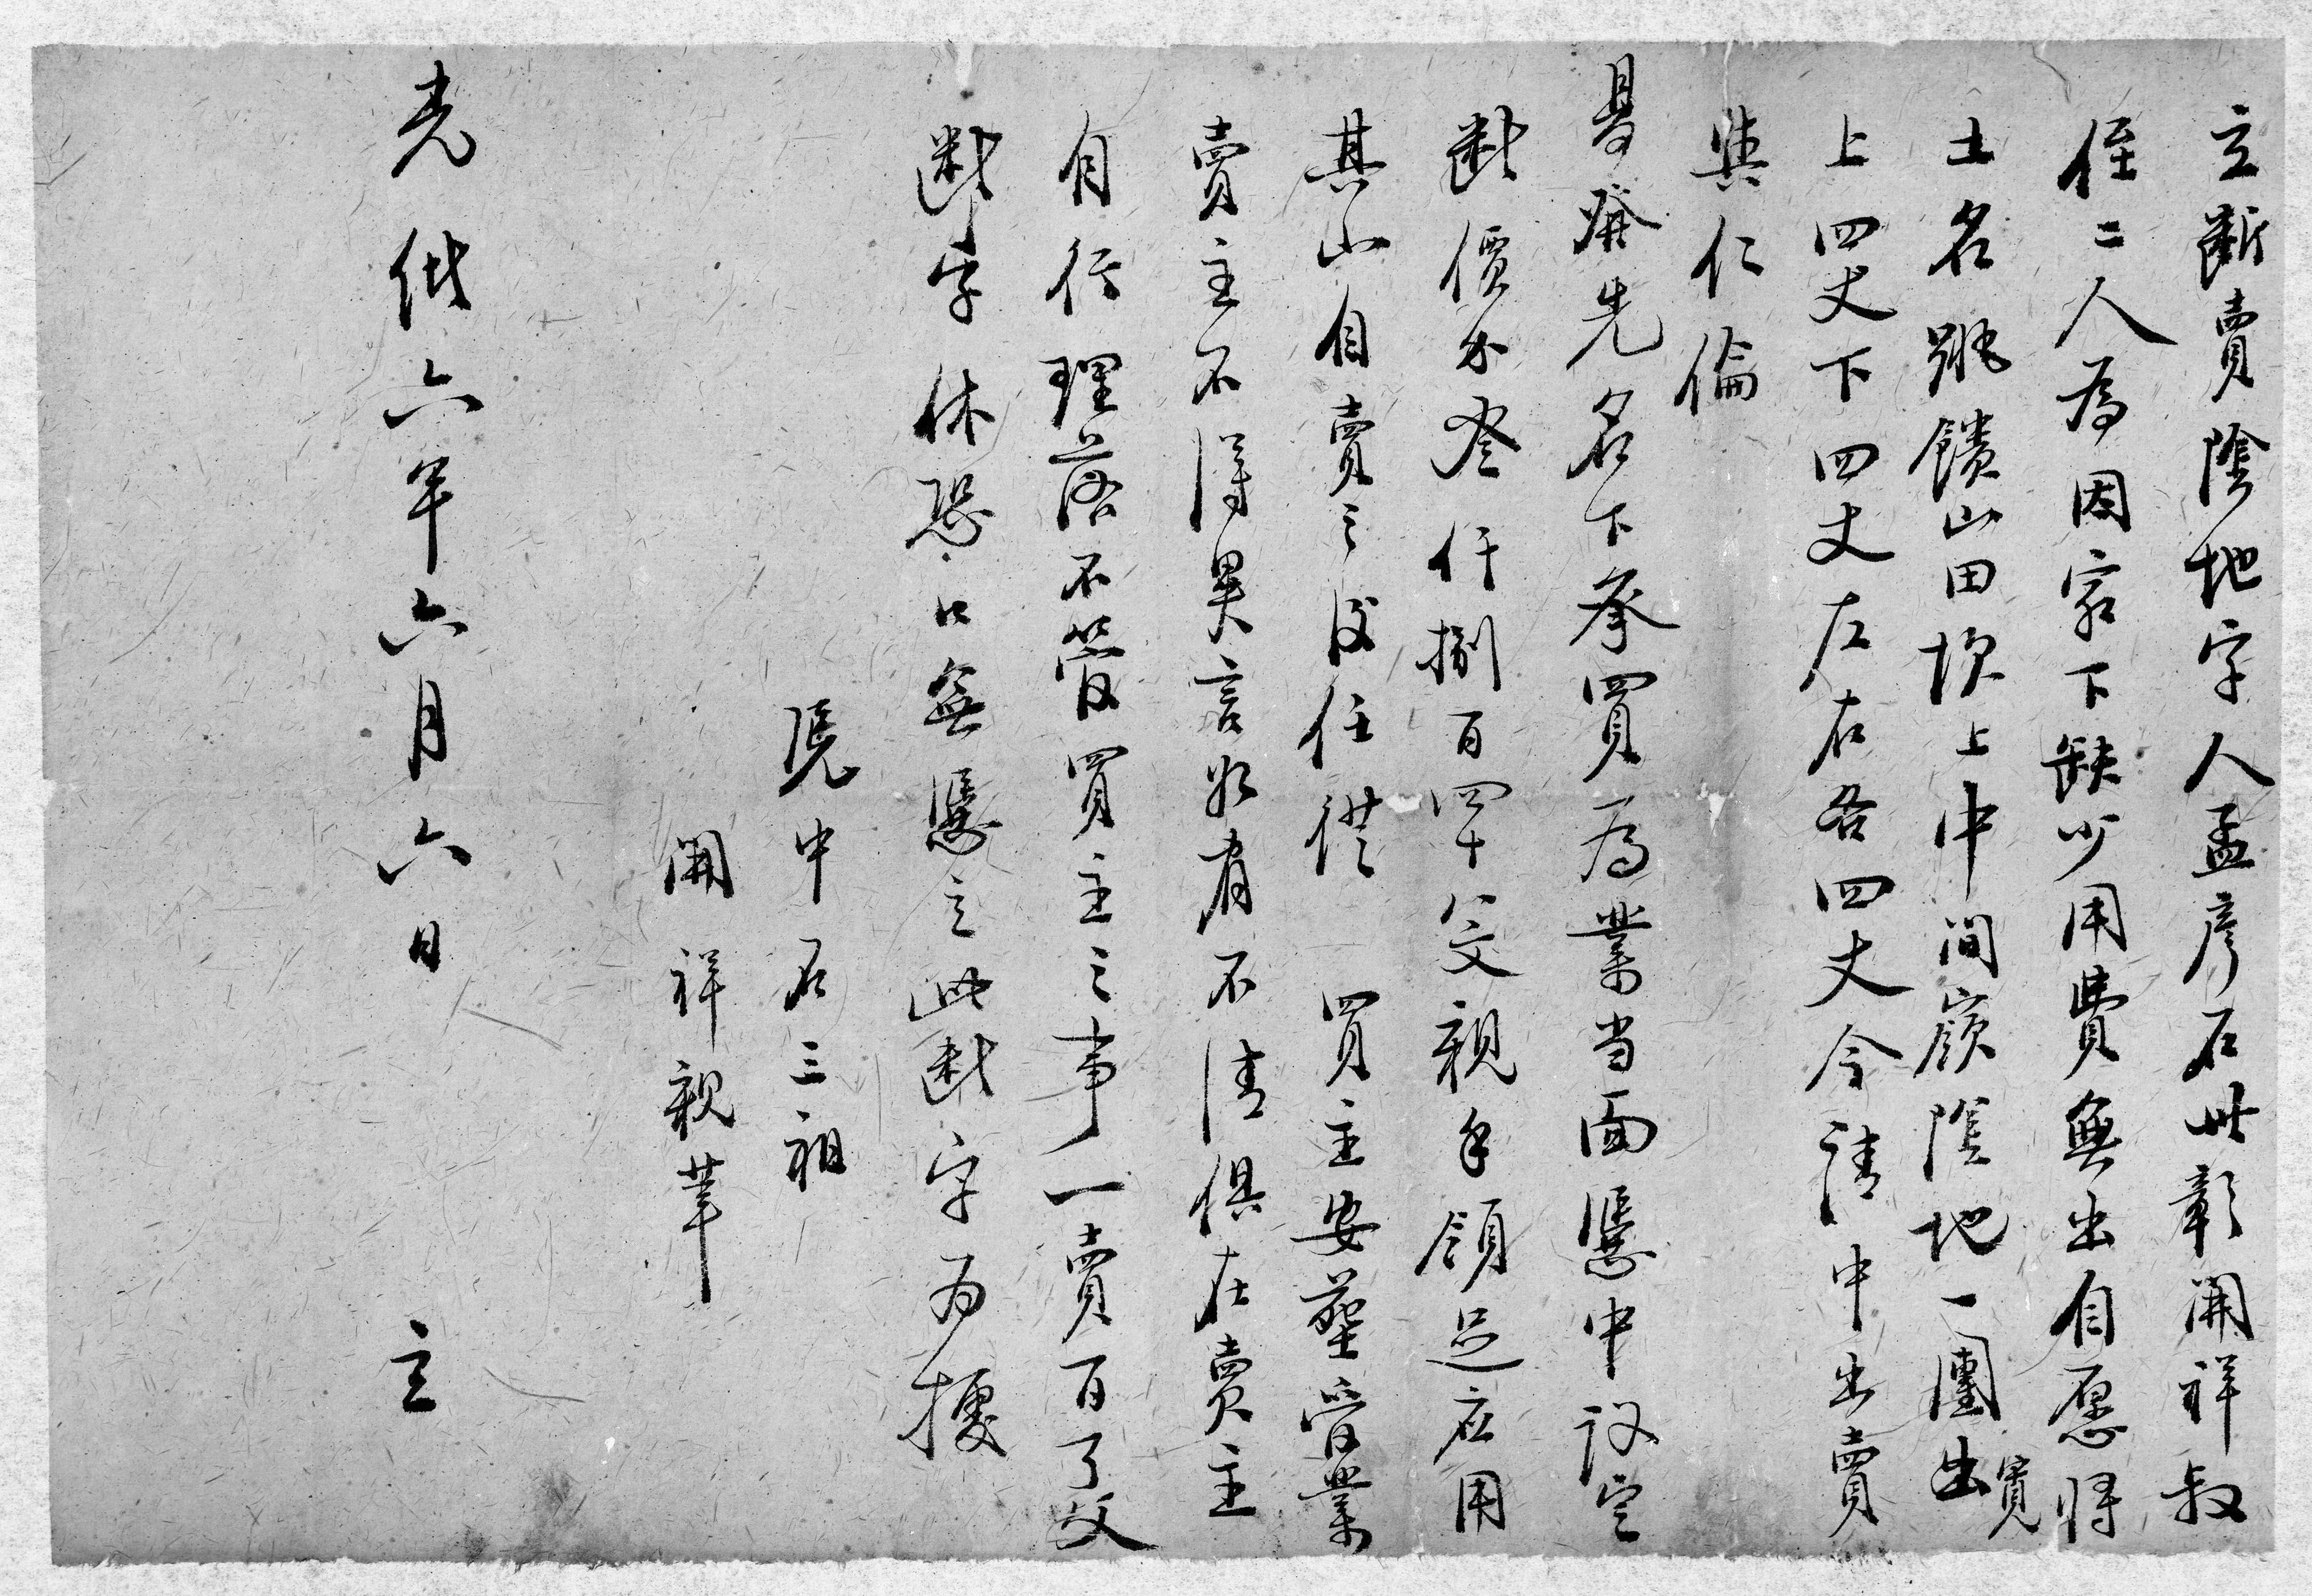 立斷賣陰地字人孟彥石世彰開祥叔
侄二人為因家下缺少用費無出自愿將
土名號饋山田坎上中間嶺陰地一團出賣
上四丈下四丈左右各四丈今請中出賣
與仁倫
晏發先名下承買為業当面憑中议定
断價木叁仟捌百四十八文親手領足应用
其山自賣之後任從 買主安葬管業
賣主不得異言如有不清俱在賣主
自行理落不管買主之事一賣百了父
断字休恐口無憑立此断字為據
凭中石三祖
開祥親筆
光绪六年六月六日 立